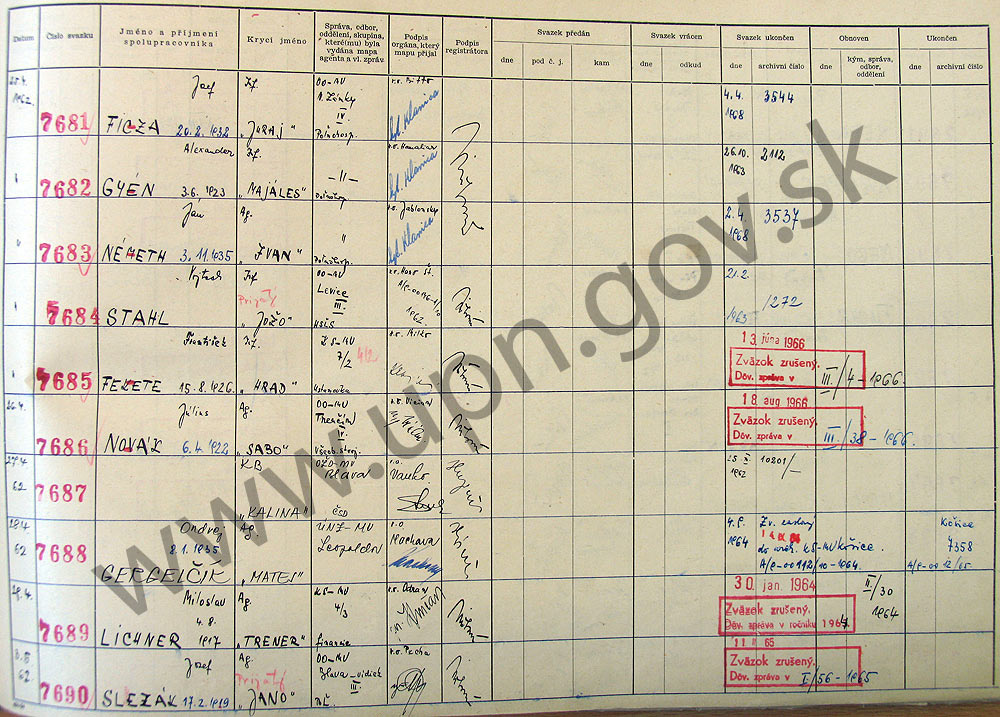 Datum
Číslo svazku
Jméno a příjmení
spolupracovníka
Krycí jméno
Správa, odbor,
oddělení, skupina,
které(mu) byla
vydána mapa
agenta a vl. zpráv.
Podpis
orgána, který
mapu přijal
Podpis
registrátora
Svazek předán
dne
pod č. j.
kam
Svazek vrácen
dne
odkud
Svazek ukončen
dne
archivní číslo
Obnoven
dne
kým, správa,
odbor,
oddělení
Ukončen
dne
archivní číslo
25.4.
1962
7681
Jozef
FICZA 20.2.1932
Inf.
"JURAJ"
OO-MV
N. Zámky
IV.
Poľnohosp.
4.4.
1968
3544
7682
Alexander
GYÉN 3.6.1923
Inf.
"MAJÁLES"
-II-
26.10.
1963
2112
7683
Ján
NÉMETH 3.11.1935
Ag.
"IVAN"
"
2.4.
1968
3537
7684
Vojtech
STAHL
Inf.
"JOŽO"
OO-MV
Levice
III
1962.
21.2.
1963
1272
7685
František
FEKETE 15.8.1926.
Inf.
"HRAD"
KS-MV
7/2 4/2
13. júna 1966
Zväzok zrušený.
Dôv. zpráva v III./4-1966.
26.4.
7686
Július
NOVÁK 6.4.1922
Ag.
"SABO"
OO-MV
Trenčín
IV.
18 aug 1966
Zväzok zrušený.
Dôv. zpráva v III./38-1966.
27.4.
62
7687
KB
"KALINA"
OŽD-MV
Blava
ČSD
r.o.
Vanko
25. X.
1962
10201/-
28.4.
62
7688
Ondrej
8.1.1935
GERGELČÍK
Ag.
"MATES"
ÚNZ-MV
Leopoldov
r.o.
Machava
4.8.
1964
Zv. zaslaný
KS-MV Košice.
A/p-00112/10-1964.
Košice
7358
A/p-0012/65
29.4.
7689
Miloslav
4.8.
LICHNER 1917
Ag.
"TRENER"
KS-MV
4/3
financie
30 jan. 1964
Zväzok zrušený.
Dôv. zpráva v ročníku 1964
II./30
1964
3.5
62.
7690
Jozef
SLEZÁK 17.2.1919
Ag.
"JANO"
OO-MV
Blava-vidiek
III
r.o. Pecha
11 II 65
Zväzok zrušený.
Dôv. zpráva v I/56-1965
www.upn.gov.sk